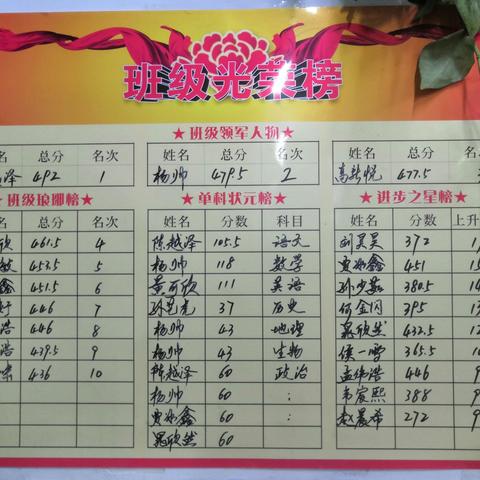 班级光荣榜
★班级领军人物★
名 总分 名次 姓名 总分 名次 姓名 总分
泽 492 1 杨帅 479.5 2 高新悦 477.5
班级琅琊榜★ ★单科状元榜★ ★进步之星榜★
名 总分 名次 姓名 分数 科目 姓名 分数 上升
欣 461.5 4 陈越泽 105.5 语文 刘昊昊 372
453.5 5 杨帅 118 数学 鑫 451
鑫 451.5 6 黄可欣 111 英语 孙少 380.5
好 446 7 孙艺 37 历史 何金闪 395
浩 446 8 杨帅 43 地理 晁欣然 432.5
浩 439.5 9 杨帅 43 生物 侯一雪 365.5
436 10 陈越泽 60 政治 孟伟浩 446
杨帅 60 : 韦宸熙 388
鑫 60 : 赵晨希 272
晁欣然 60